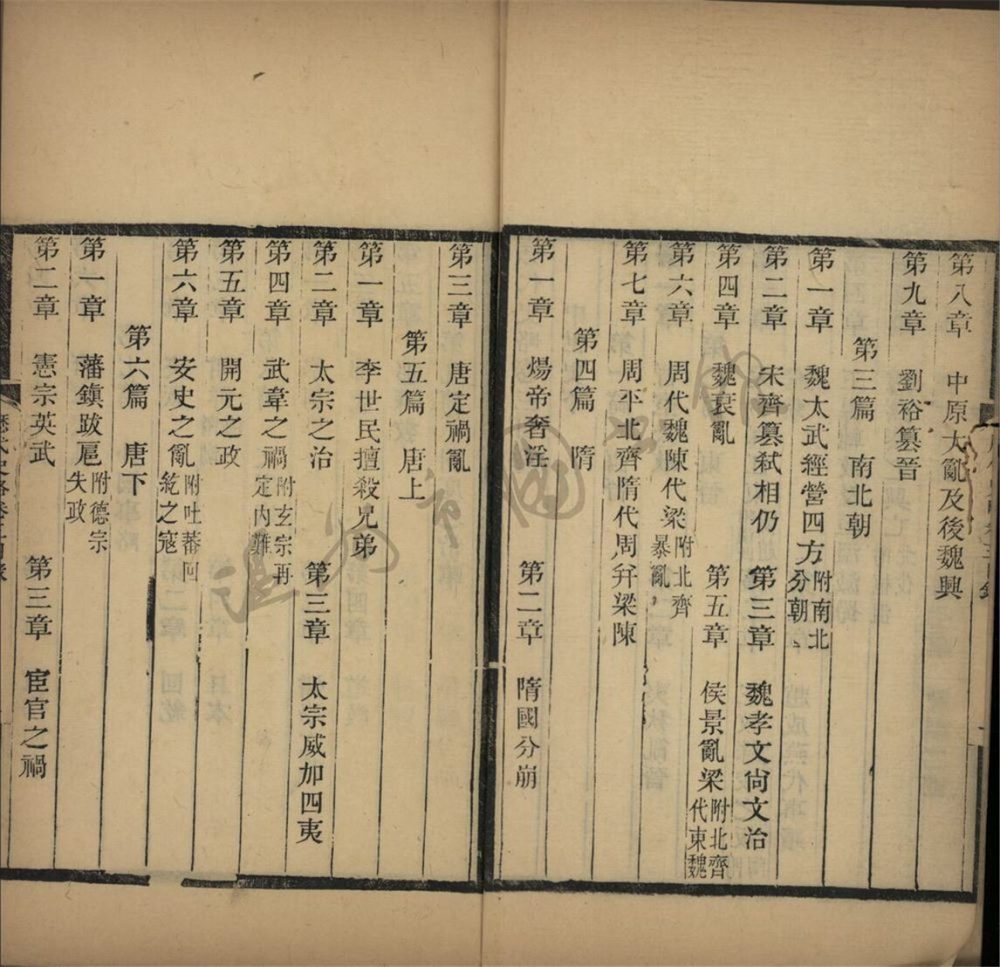 第八章　中原大亂及後魏興
第九章　劉裕篡晉
第三篇　南北朝
第一章　魏太武經營四方附南北分朝
第二章　宋齊篡弒相仍　第三章　魏孝文尙文治
第四章　魏衰亂　第五章　侯景亂梁附北齊代東魏
第六章　周代魏陳代梁附北齊暴亂
第七章　周平北齊隋代周幷梁陳
第四篇　隋
第一章　煬帝奢淫　第二章　隋國分崩
第三章　唐定禍亂
第五篇　唐上
第一章　李世民擅殺兄弟
第二章　太宗之治　第三章　太宗威加四夷
第四章　武韋之禍附玄宗再定內難
第五章　開元之政
第六章　安史之亂附吐蕃回紇之寇
第六篇　唐下
第一章　藩鎭跋扈附德宗失政
第二章　憲宗英武　第三章　宦官之禍